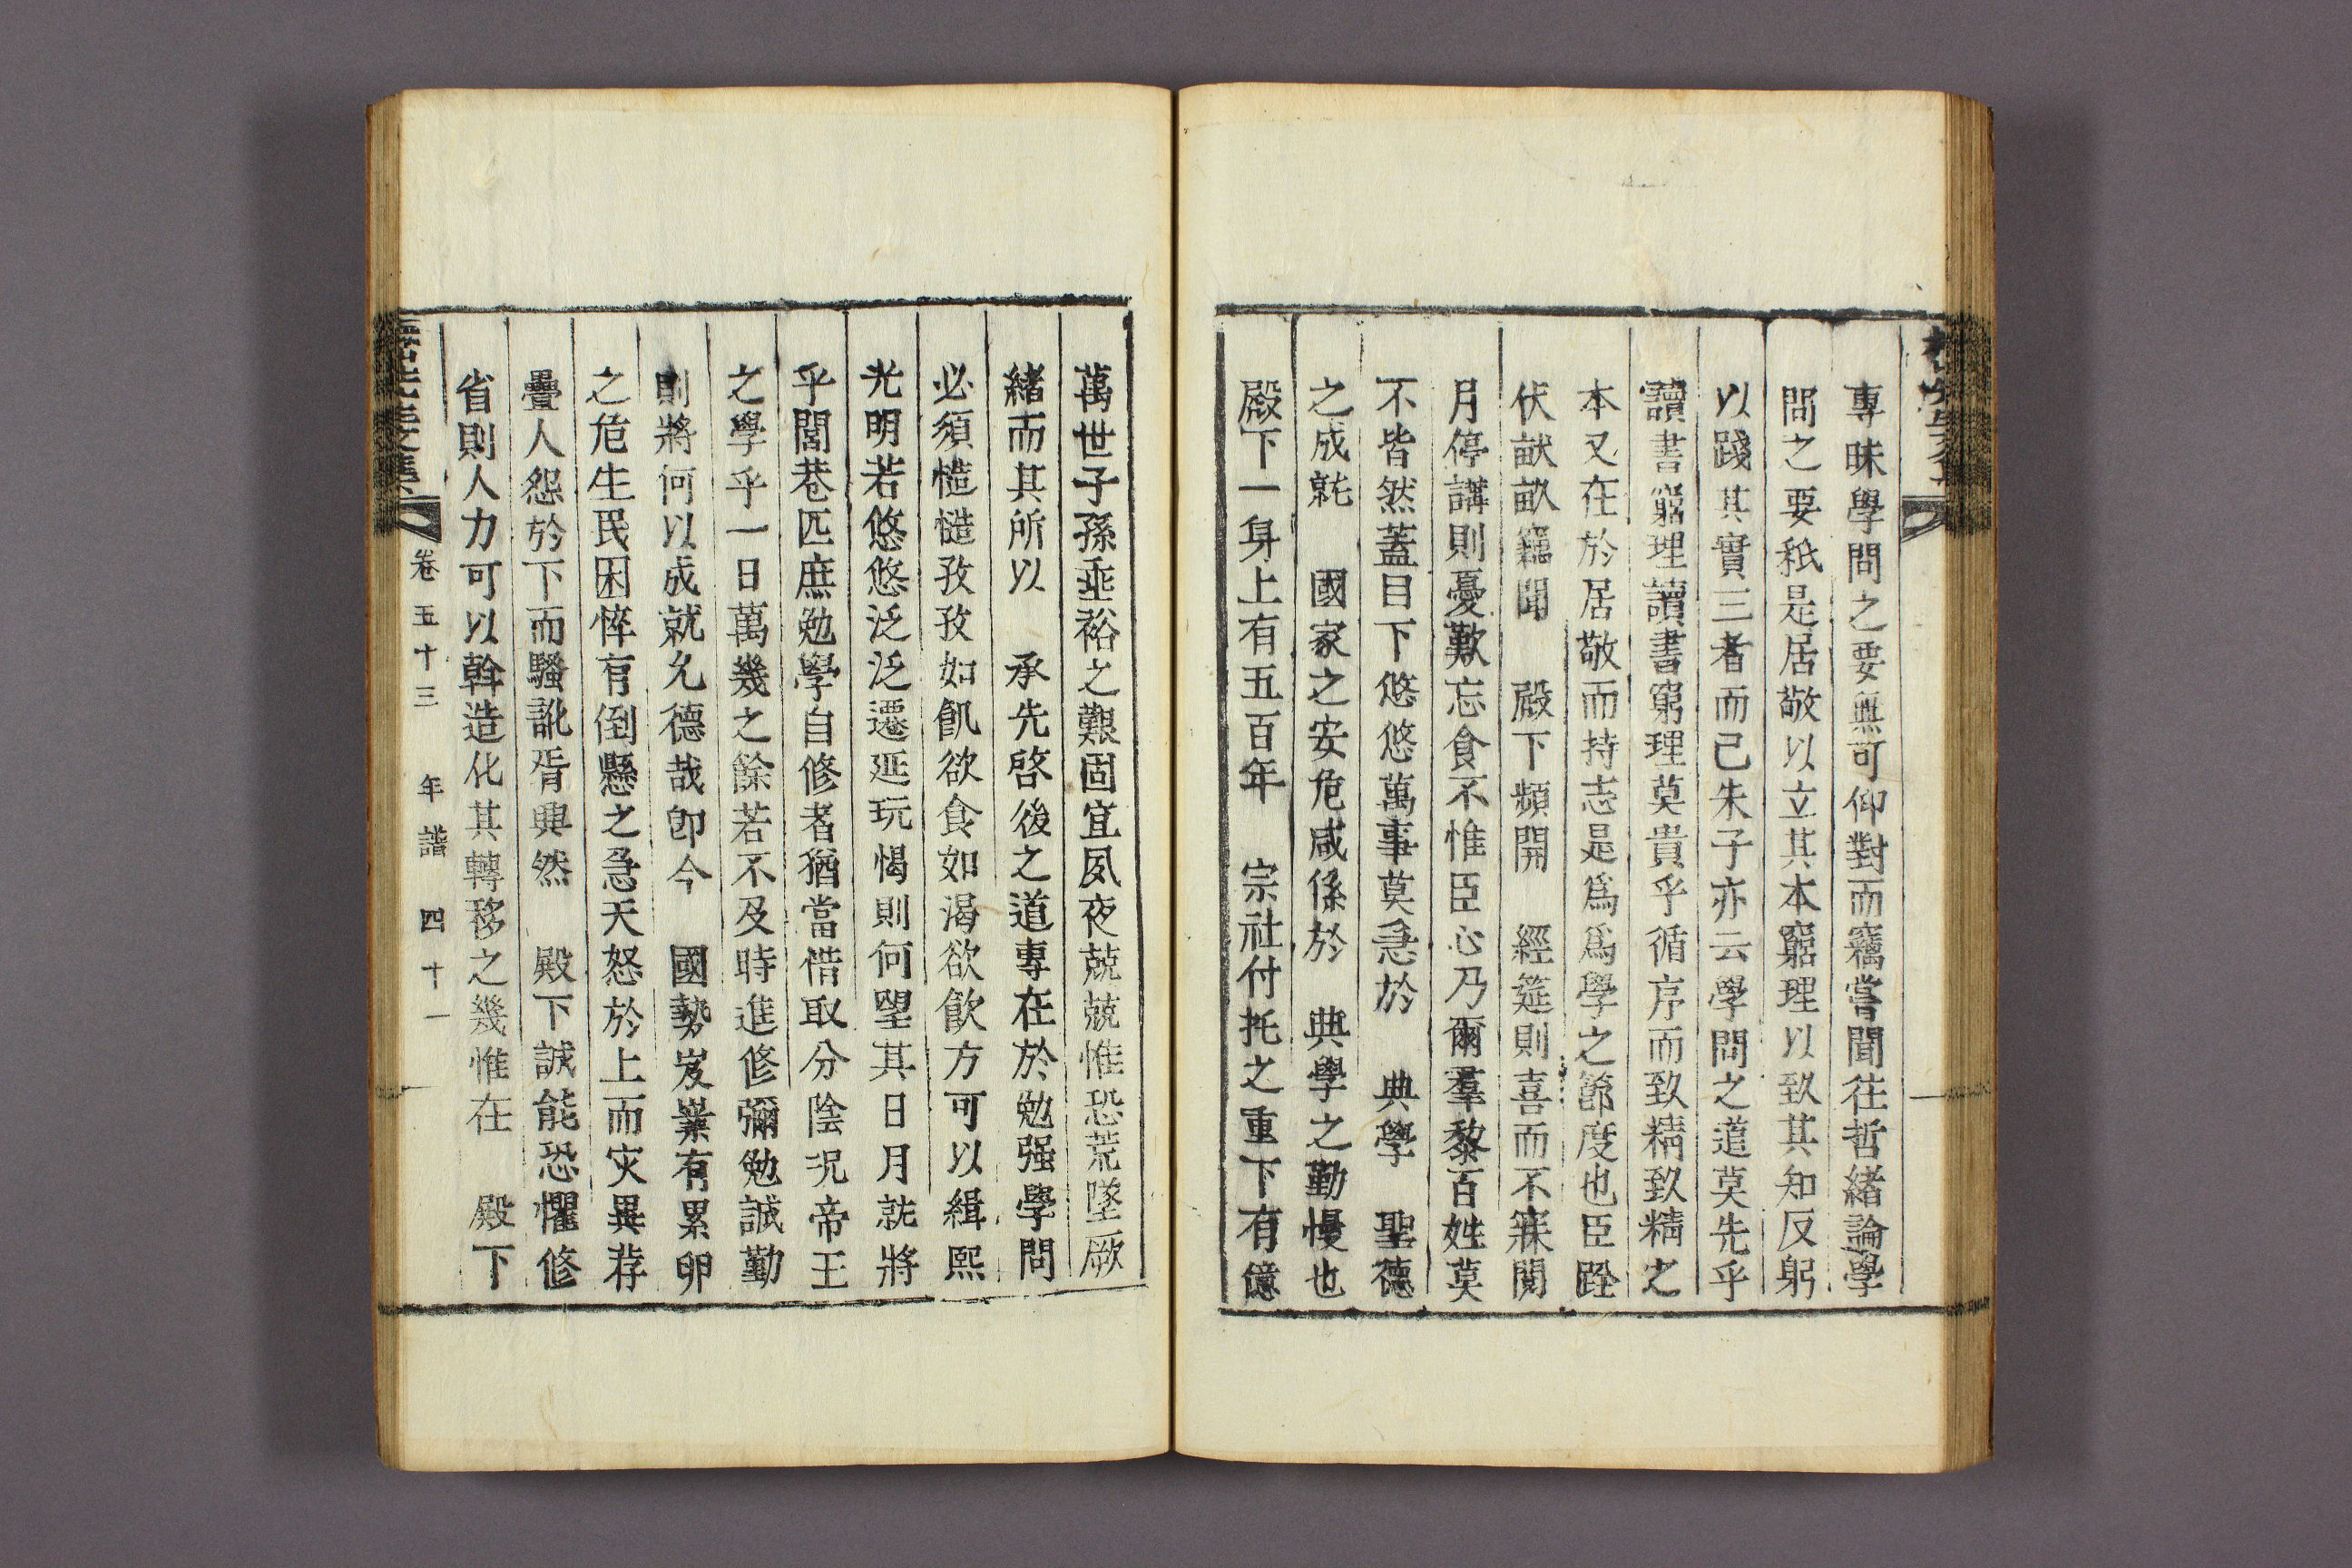 專昧學問之要無可仰對而竊嘗聞往哲緖論學
問之要秖是居敬以立其本窮理以致其知反躬
以踐其實三者而已朱子亦云學問之道莫先乎
讀書窮理讀書窮理莫貴乎循序而致精致精之
本又在於居敬而持志是爲爲學之節度也臣跧
伏畎畝竊聞 殿下頻開 經筵則喜而不寐閱
月停講則憂歎忘食不惟臣心乃爾羣黎百姓莫
不皆然蓋目下悠悠萬事莫急於 典學 聖德
之成就 國家之安危咸係於 典學之勤慢也
殿下一身上有五百年 宗社付托之重下有億
萬世子孫垂裕之艱固宜夙夜兢兢惟恐荒墜厥
緖而其所以 承先啓後之道專在於勉强學問
必須慥慥孜孜如飢欲食如渴欲飮方可以緝熙
光明若悠悠泛泛遷延玩愒則何望其日月就將
乎閭巷匹庶勉學自修者猶當惜取分陰况帝王
之學乎一日萬幾之餘若不及時進修彌勉誠勤
則將何以成就允德哉卽今 國勢岌嶪有累卵
之危生民困悴有倒懸之急天怒於上而灾異荐
疊人怨於下而騷訛胥興然 殿下誠能恐懼修
省則人力可以斡造化其轉移之幾惟在 殿下
卷五十三 年譜 四十一